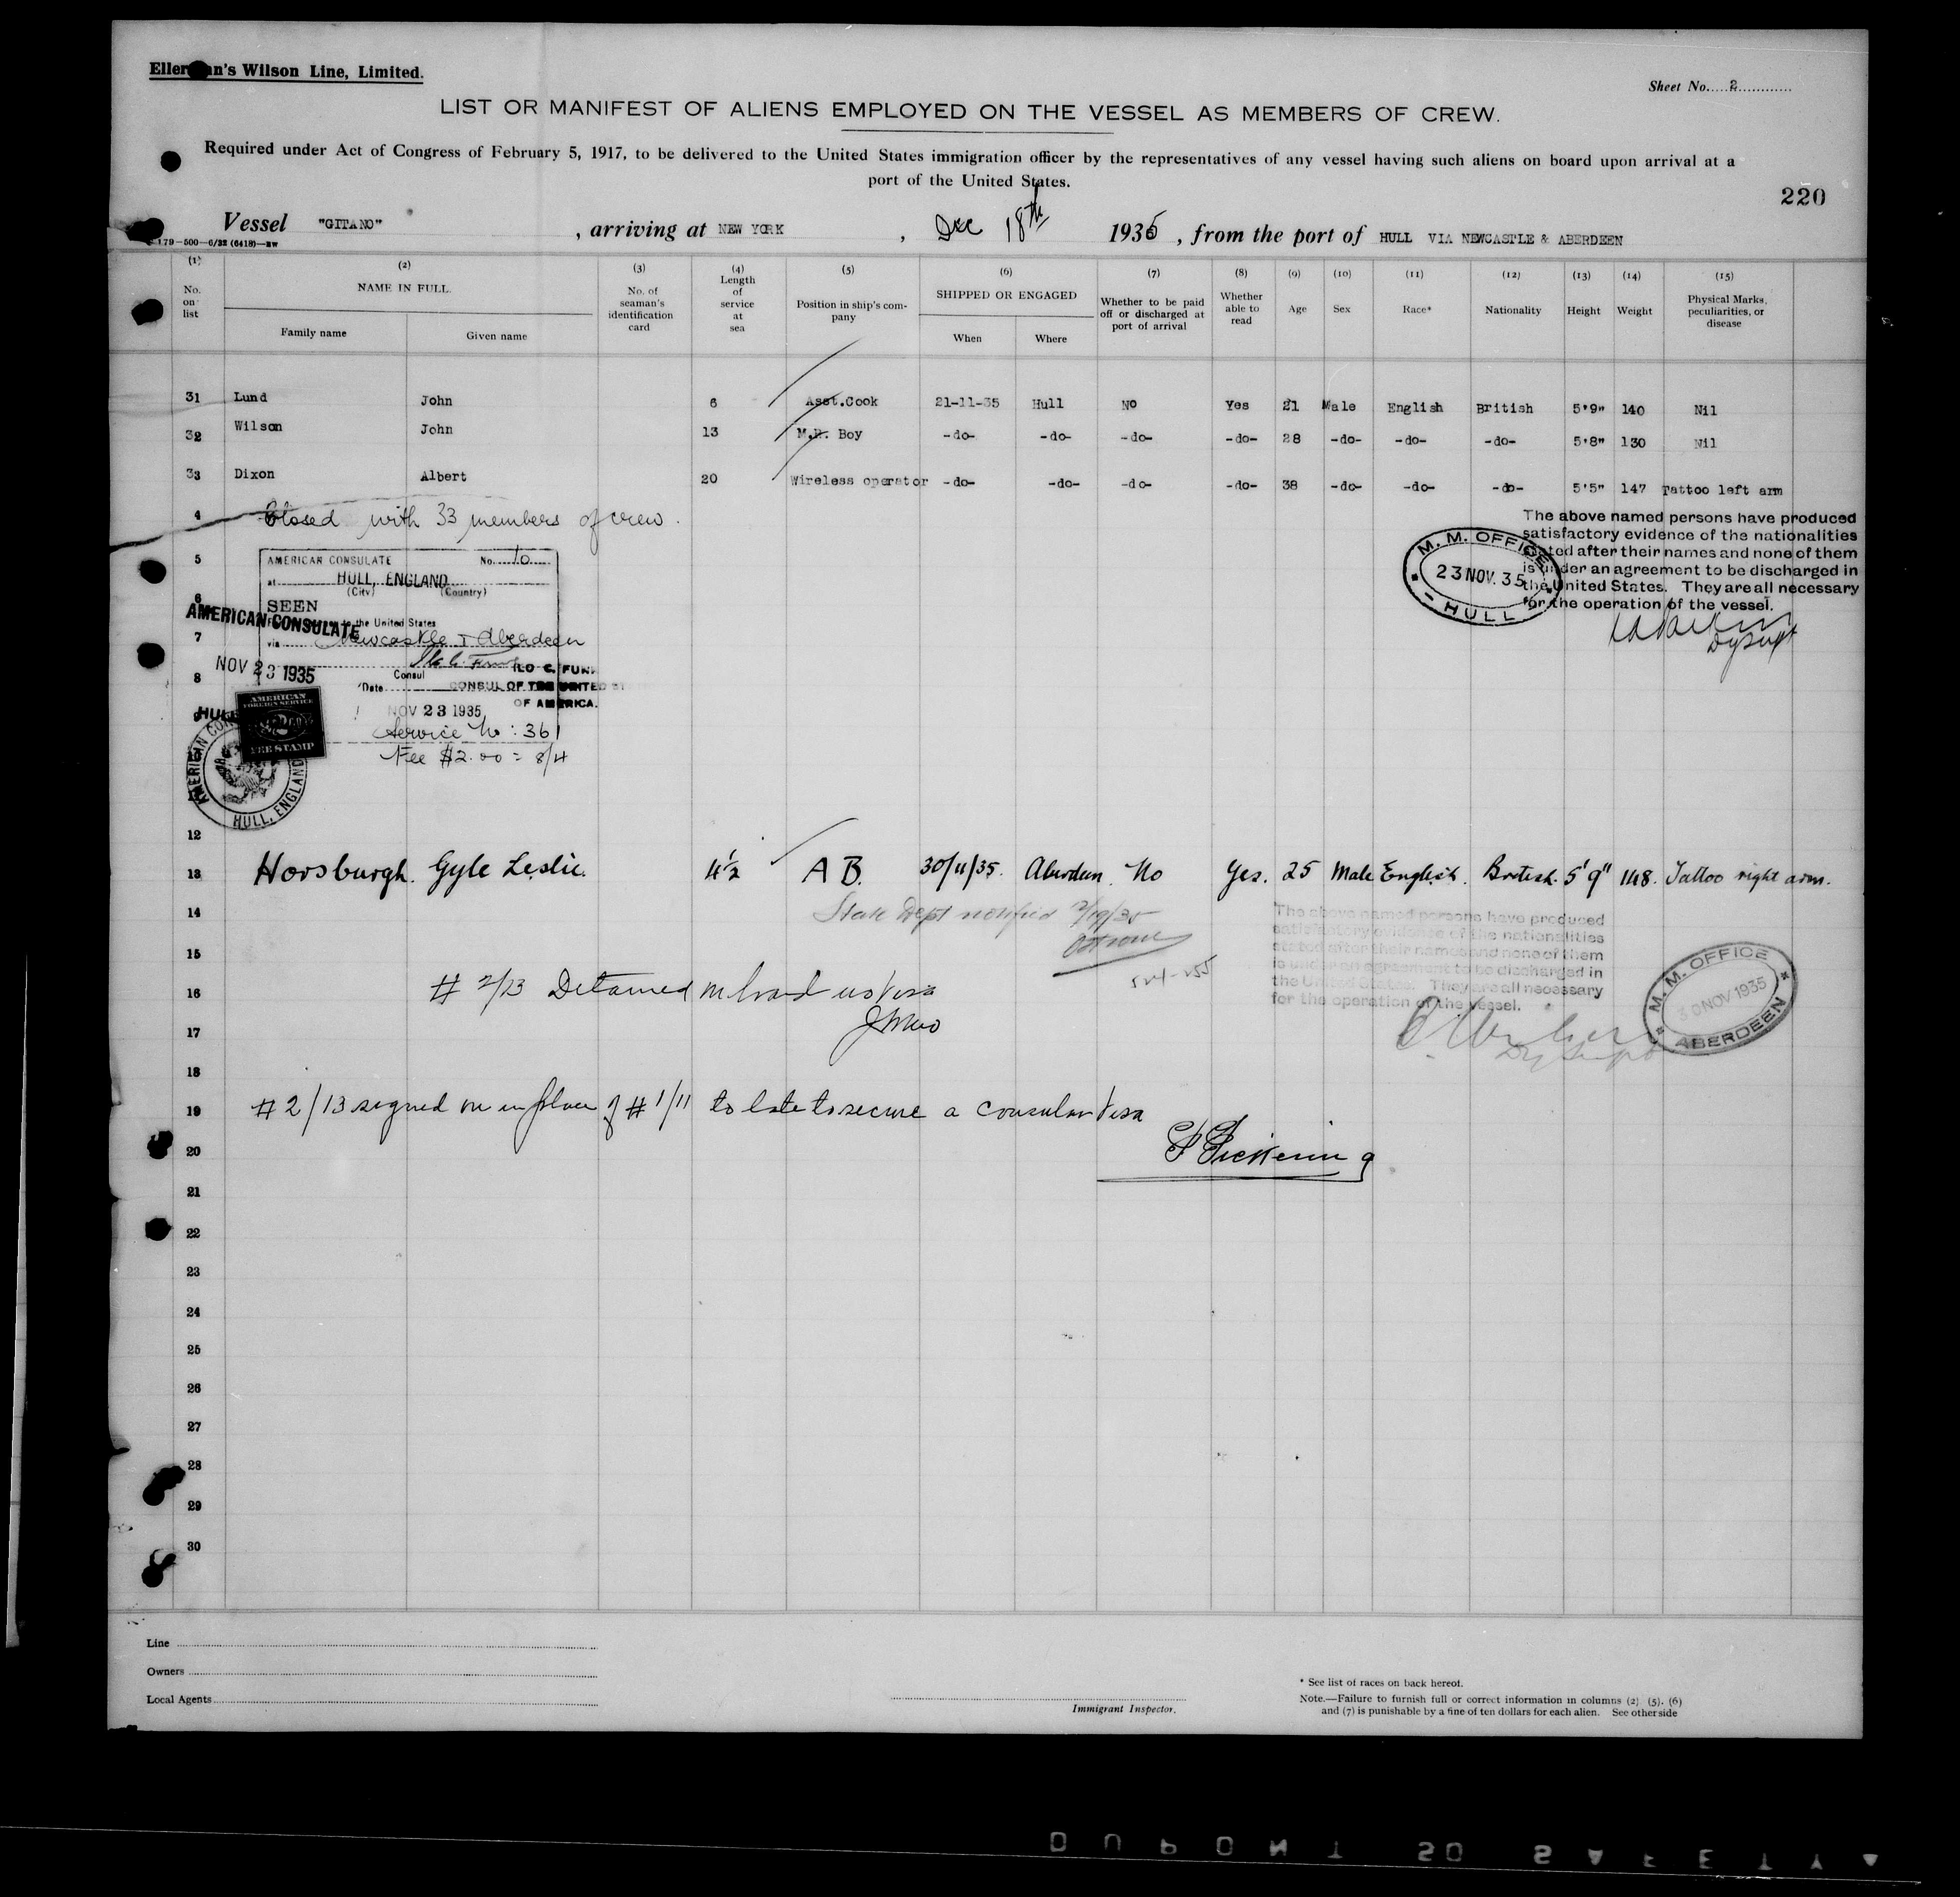 Ellerman's Wilson Line, Limited.
Sheet No. 2
LIST OR MANIFEST OF ALIENS EMPLOYED ON THE VESSEL AS MEMBERS OF CREW.
Required under Act of Congress of February 5, 1917, to be delivered to the United States immigration officer by the representatives of any vessel having such aliens on board upon arrival at a
port of the United States.
220
Vessel "GITANO", arriving at NEW YORK, Dec 18th 1935, from the port of HULL VIA NEWCASTLE & ABERDEEN
179-500-6/32 (6418)
(1) (2) (3) (4) (5) (6) (7) (8) (9) (10) (11) (12) (13) (14) (15)
No. on list
NAME IN FULL.
Family name
Given name
No. of seaman's identification card
Length of service at sea
Position in ship's company
SHIPPED OR ENGAGED
When
Where
Whether to be paid off or discharged at port of arrival
Whether able to read
Age
Sex
Race*
Nationality
Height
Weight
Physical Marks, peculiarities, or disease
31 Lund John 6 Asst.Cook 21-11-35 Hull No Yes 21 Male English British 5'9" 140 Nil
32 Wilson John 13 M.R. Boy -do- -do- -do- -do- 28 -do- -do- -do- 5'8" 130 Nil
33 Dixon Albert 20 Wireless operator -do- -do- -do- -do- 38 -do- -do- -do- 5'5" 147 Tattoo left arm
4 Closed with 33 members of crew.
The above named persons have produced
satisfactory evidence of the nationalities
stated after their names and none of them
is under an agreement to be discharged in
the United States. They are all necessary
for the operation of the vessel.
M. M. OFFICE
23 NOV. 35
HULL
Dy Supt
5
AMERICAN CONSULATE No. 10
at HULL, ENGLAND
(City) (Country)
6
SEEN
AMERICAN CONSULATE
to the United States
7
via Newcastle & Aberdeen
NOV 23 1935
8
Consul
ILO C. FUNK
Date
CONSUL OF THE UNITED
OF AMERICA.
HULL
NOV 23 1935
AMERICAN FOREIGN SERVICE
FEE STAMP
Service No: 361
Fee $2.00 = 8/4
AMERICAN CON
HULL, ENGLAND
12
13 Horsburgh. Gyle Leslie. 4½ A B. 30/11/35. Aberdeen. No Yes. 25 Male English. British. 5'9" 148. Tattoo right arm.
14
State Dept notified
The above named persons have produced
satisfactory evidence of the nationalities
stated after their names and none of them
is under an agreement to be discharged in
the United States. They are all necessary
for the operation of the vessel.
M. M. OFFICE
30 NOV 1935
ABERDEEN
Dy Supt
15
16 # 2/13 Detained on board no Visa
17
18
19 # 2/13 signed on in place of # 1/11 to late to secure a consular Visa
20 Pickering
21
22
23
24
25
26
27
28
29
30
Line
Owners
Local Agents
Immigrant Inspector.
* See list of races on back hereof.
Note.—Failure to furnish full or correct information in columns (2) (5). (6)
and (7) is punishable by a fine of ten dollars for each alien. See other side
DUPONT SO SAFETY